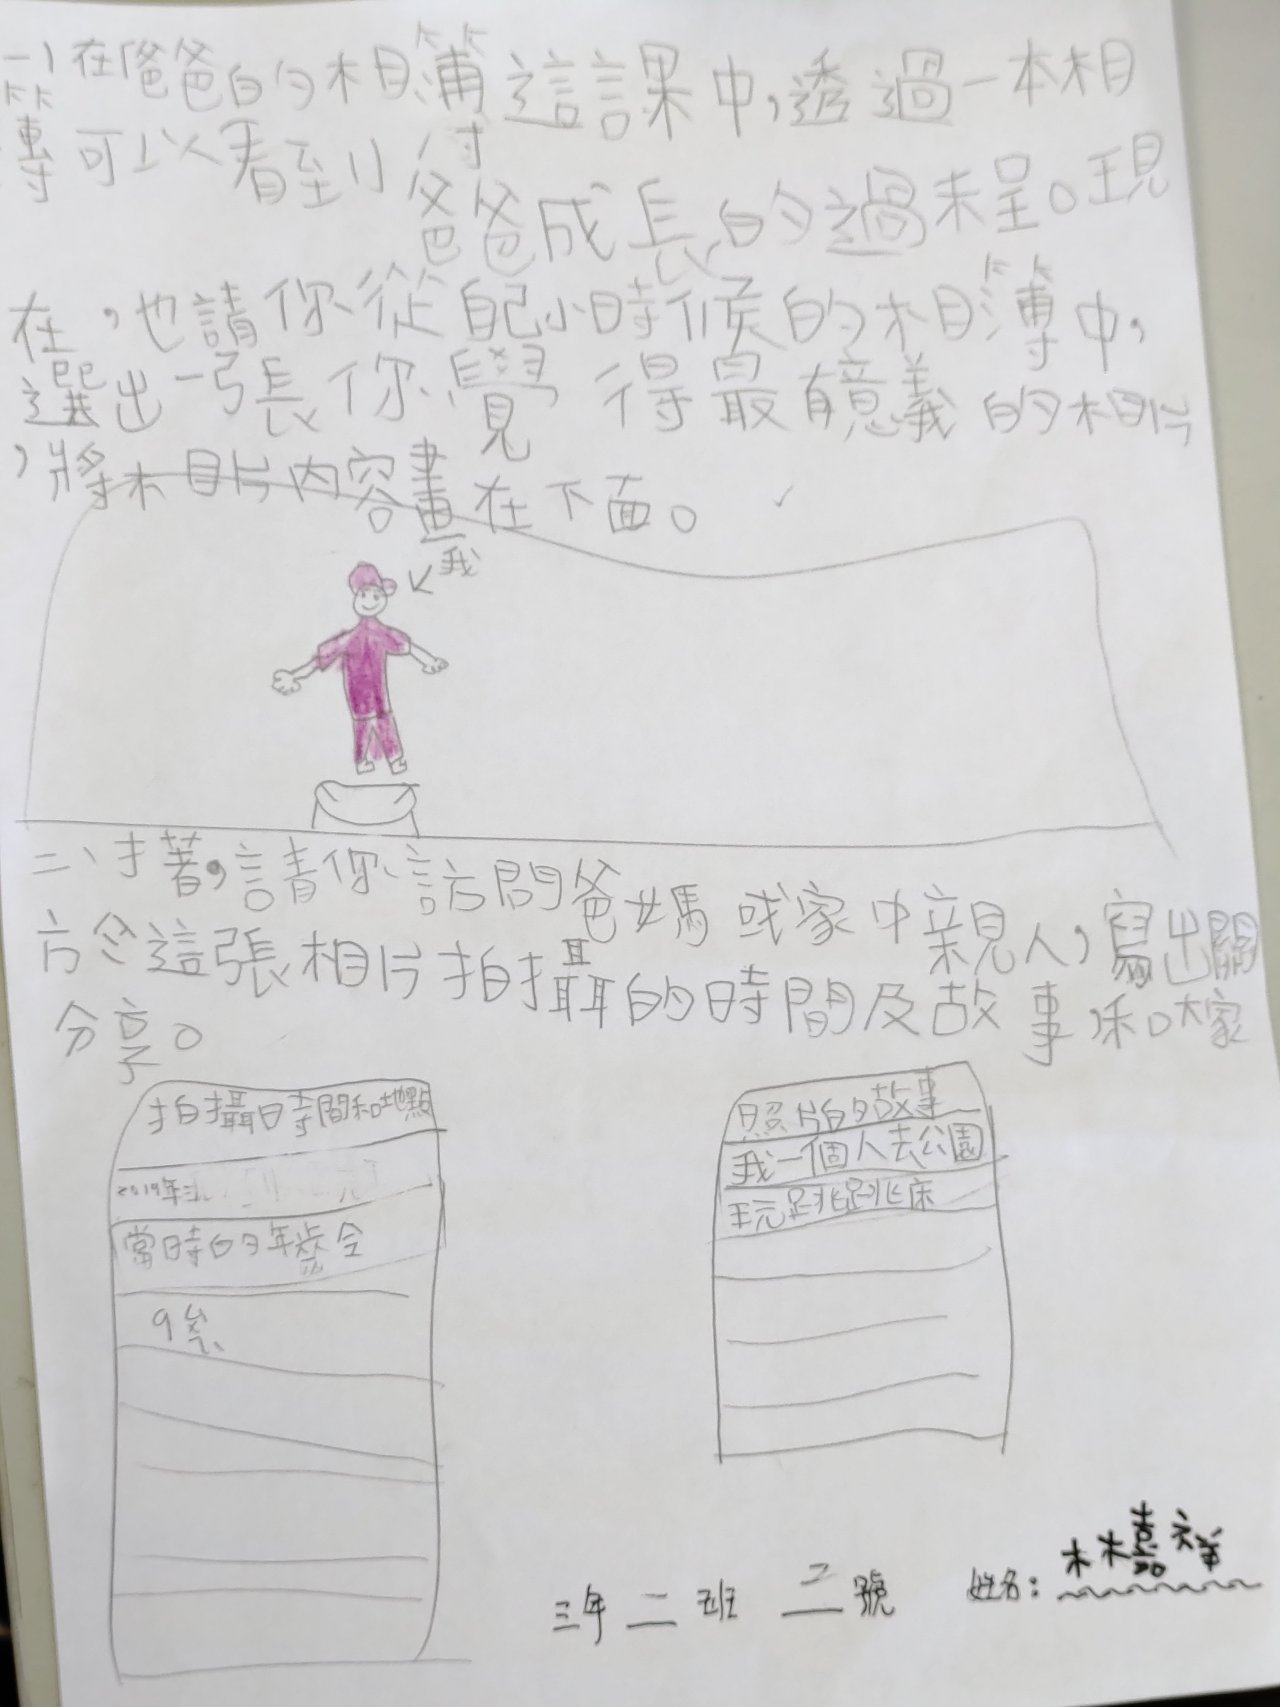 一、在爸爸的相簿這課中,透過一本相
簿可以看到
爸爸成長的過程。現
在,也請你從自己小時候的相簿中,
選出一張你覺得最有意義的相片
,將相片內容畫在下面。
我
二、接著,請你訪問爸媽或家中親人,寫出關
於這張相片拍攝的時間及故事,和大家
分享。
拍攝時間和地點
2019年
當時的年齡
9歲
照片的故事
我一個人去公園
玩跳跳床
三年二班 二號 姓名:林嘉祥